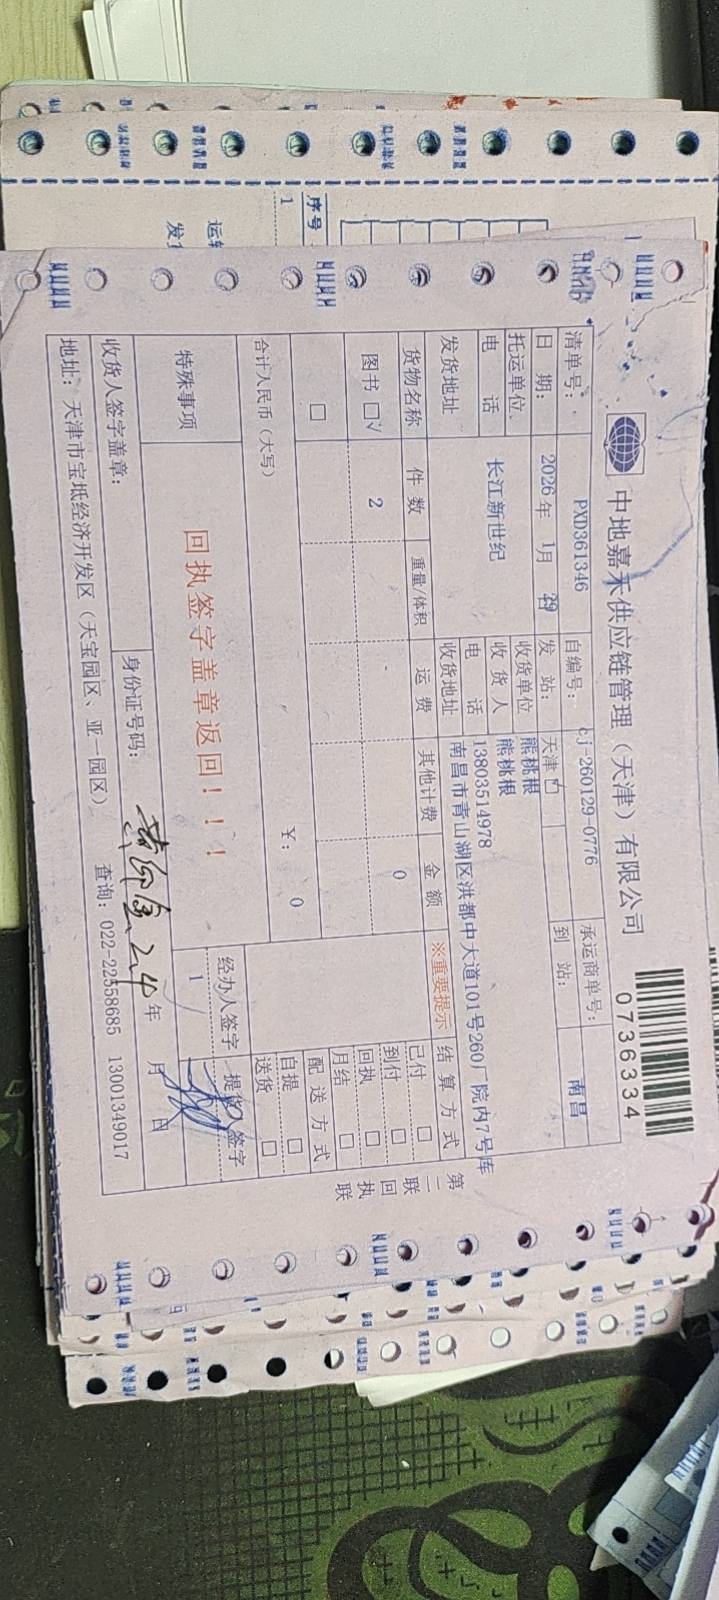 中地嘉禾供应链管理（天津）有限公司
0736334
清单号： PXD361346 自编号： cj-260129-0776 承运商单号：
日 期： 2026年 1月 29 发 站： 天津 到 站： 南昌
托运单位 长江新世纪 收货单位 熊桃根
收 货 人 熊桃根
电 话 电 话 13803514978
发货地址 收货地址 南昌市青山湖区洪都中大道101号260厂院内7号库
货物名称 件 数 重量/体积 运 费 其他计费 金 额 ※重要提示 结 算 方 式
图书 □√ 2 0 已付 □
到付 □
回执 □
月结 □
□
合计人民币（大写） ¥： 0 配 送 方 式
自提 □
送货 □
特殊事项 回执签字盖章返回！！！ 经办人签字 提货 签字
1
收货人签字盖章： 身份证号码： 年 月 日
地址： 天津市宝坻经济开发区（天宝园区、亚一园区） 查询： 022-22558685 13001349017
第二联 回执联
序号
1